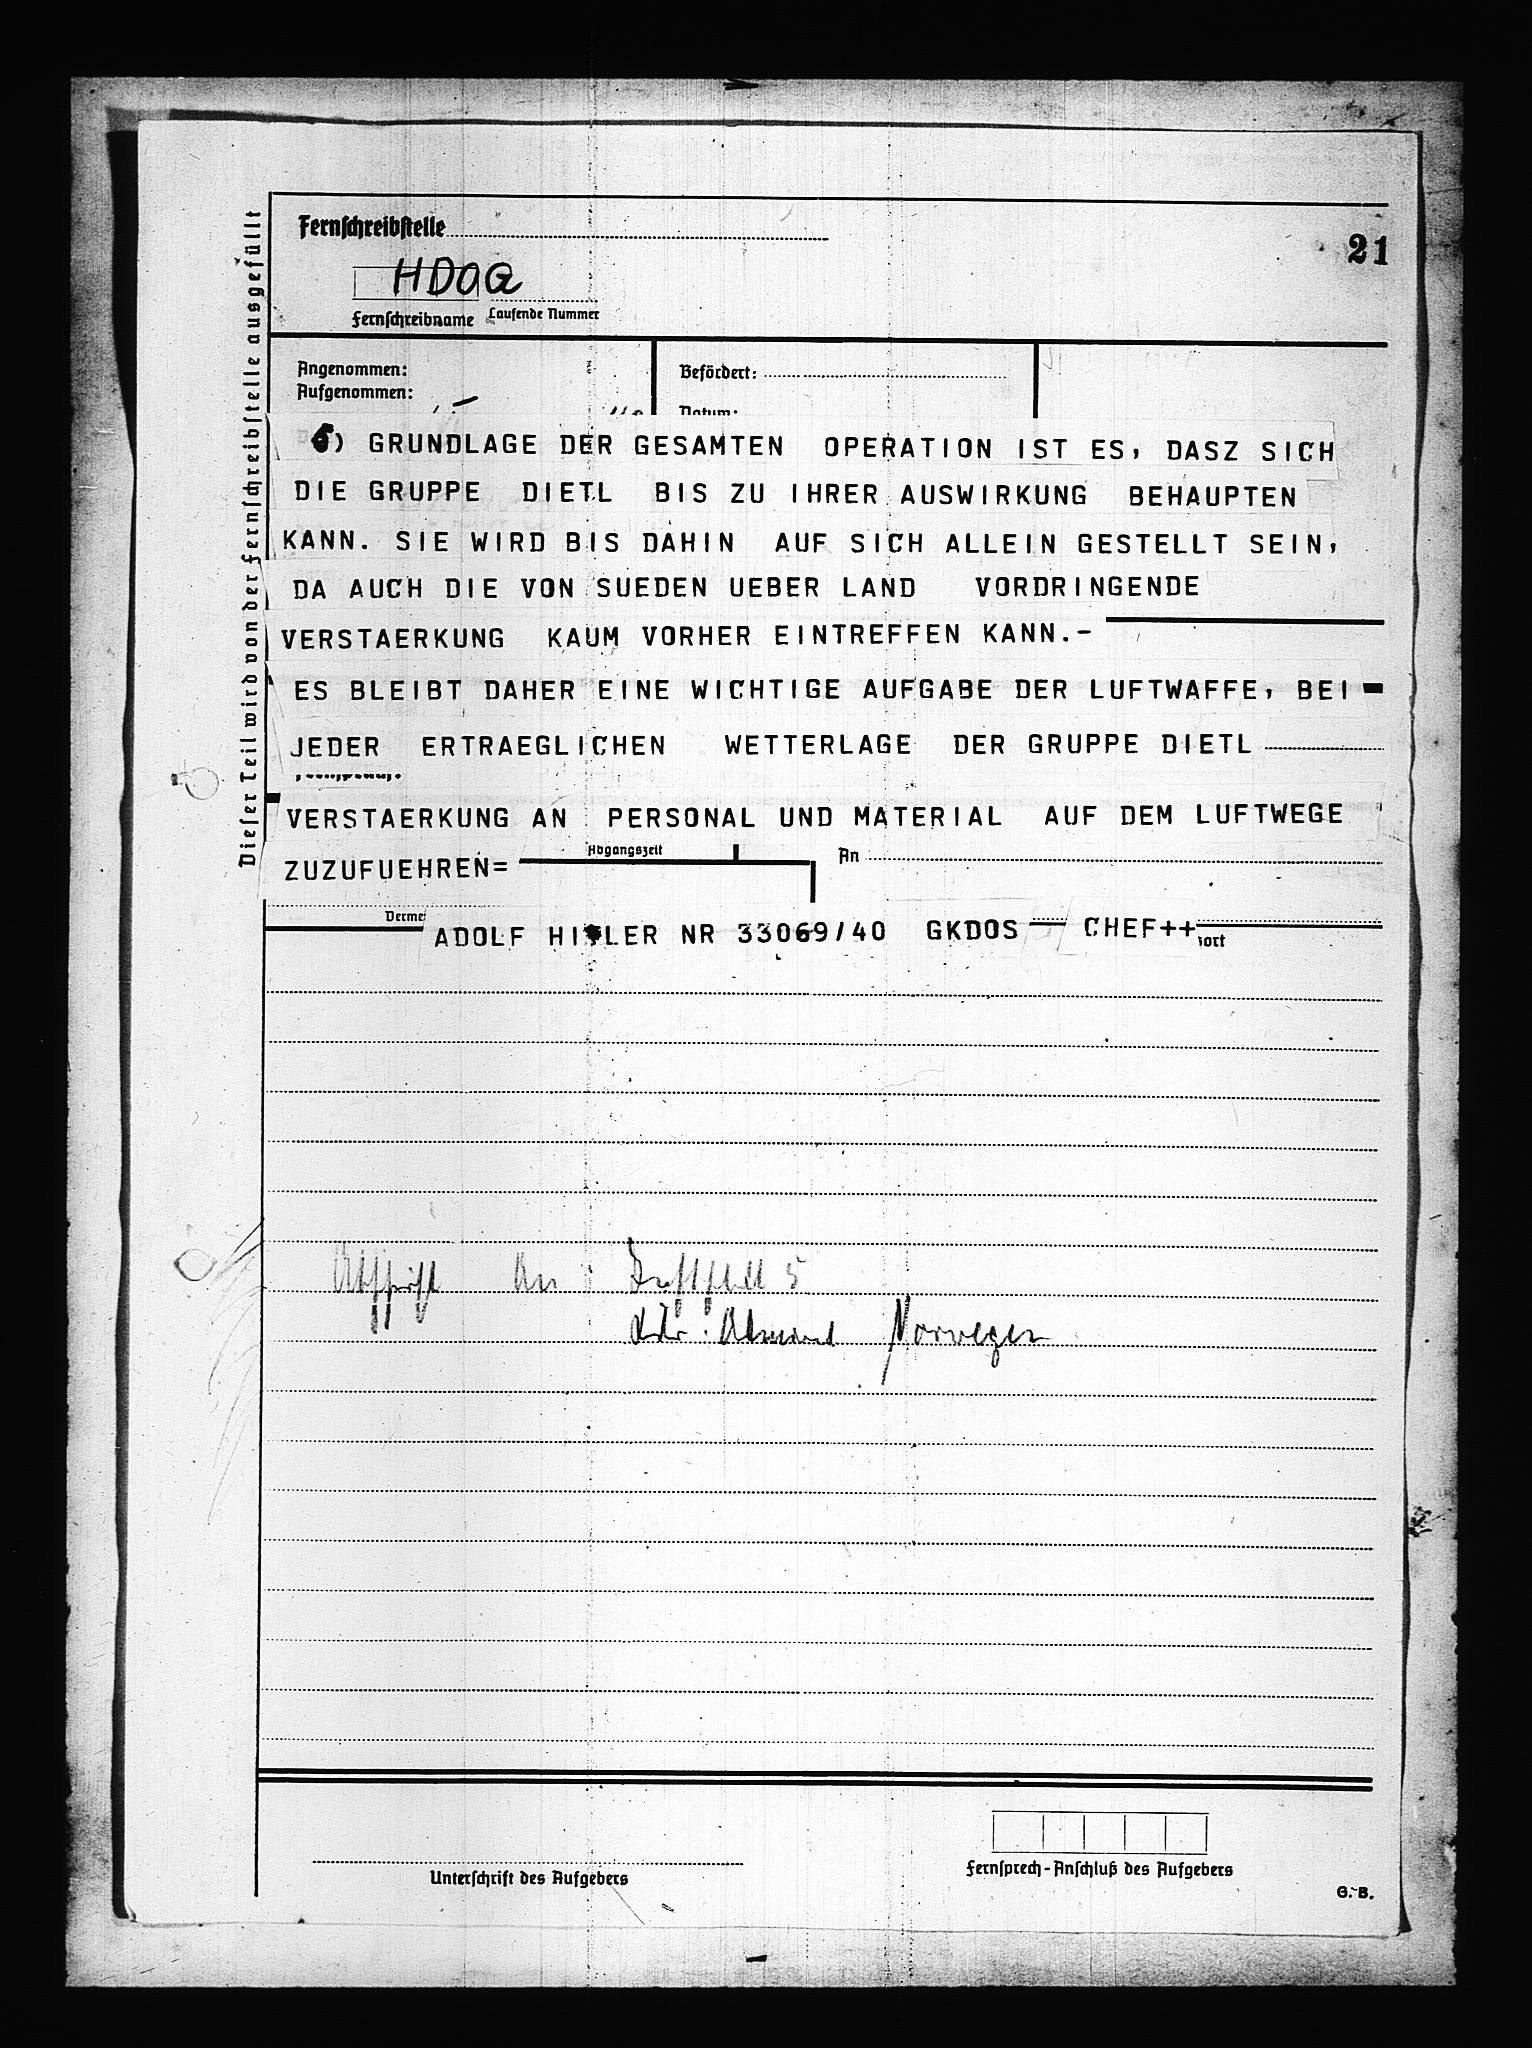 Fernschreibstelle
21
HDOQ
Fernschreibname Laufende Nummer
Dieser Teil wird von der Fernschreibstelle ausgefüllt
Angenommen:
Aufgenommen:
Befördert:
Datum:
6) GRUNDLAGE DER GESAMTEN OPERATION IST ES, DASZ SICH
DIE GRUPPE DIETL BIS ZU IHRER AUSWIRKUNG BEHAUPTEN
KANN. SIE WIRD BIS DAHIN AUF SICH ALLEIN GESTELLT SEIN,
DA AUCH DIE VON SUEDEN UEBER LAND VORDRINGENDE
VERSTAERKUNG KAUM VORHER EINTREFFEN KANN.-
ES BLEIBT DAHER EINE WICHTIGE AUFGABE DER LUFTWAFFE, BEI
JEDER ERTRAEGLICHEN WETTERLAGE DER GRUPPE DIETL
VERSTAERKUNG AN PERSONAL UND MATERIAL AUF DEM LUFTWEGE
ZUZUFUEHREN=
Abgangszeit
An
Verme
ADOLF HITLER NR 33069/40 GKDOS CHEF++
ort
Abschrift An Luftflotte 5
Adm. Norwegen
Unterschrift des Aufgebers
Fernsprech-Anschluß des Aufgebers
G. B.